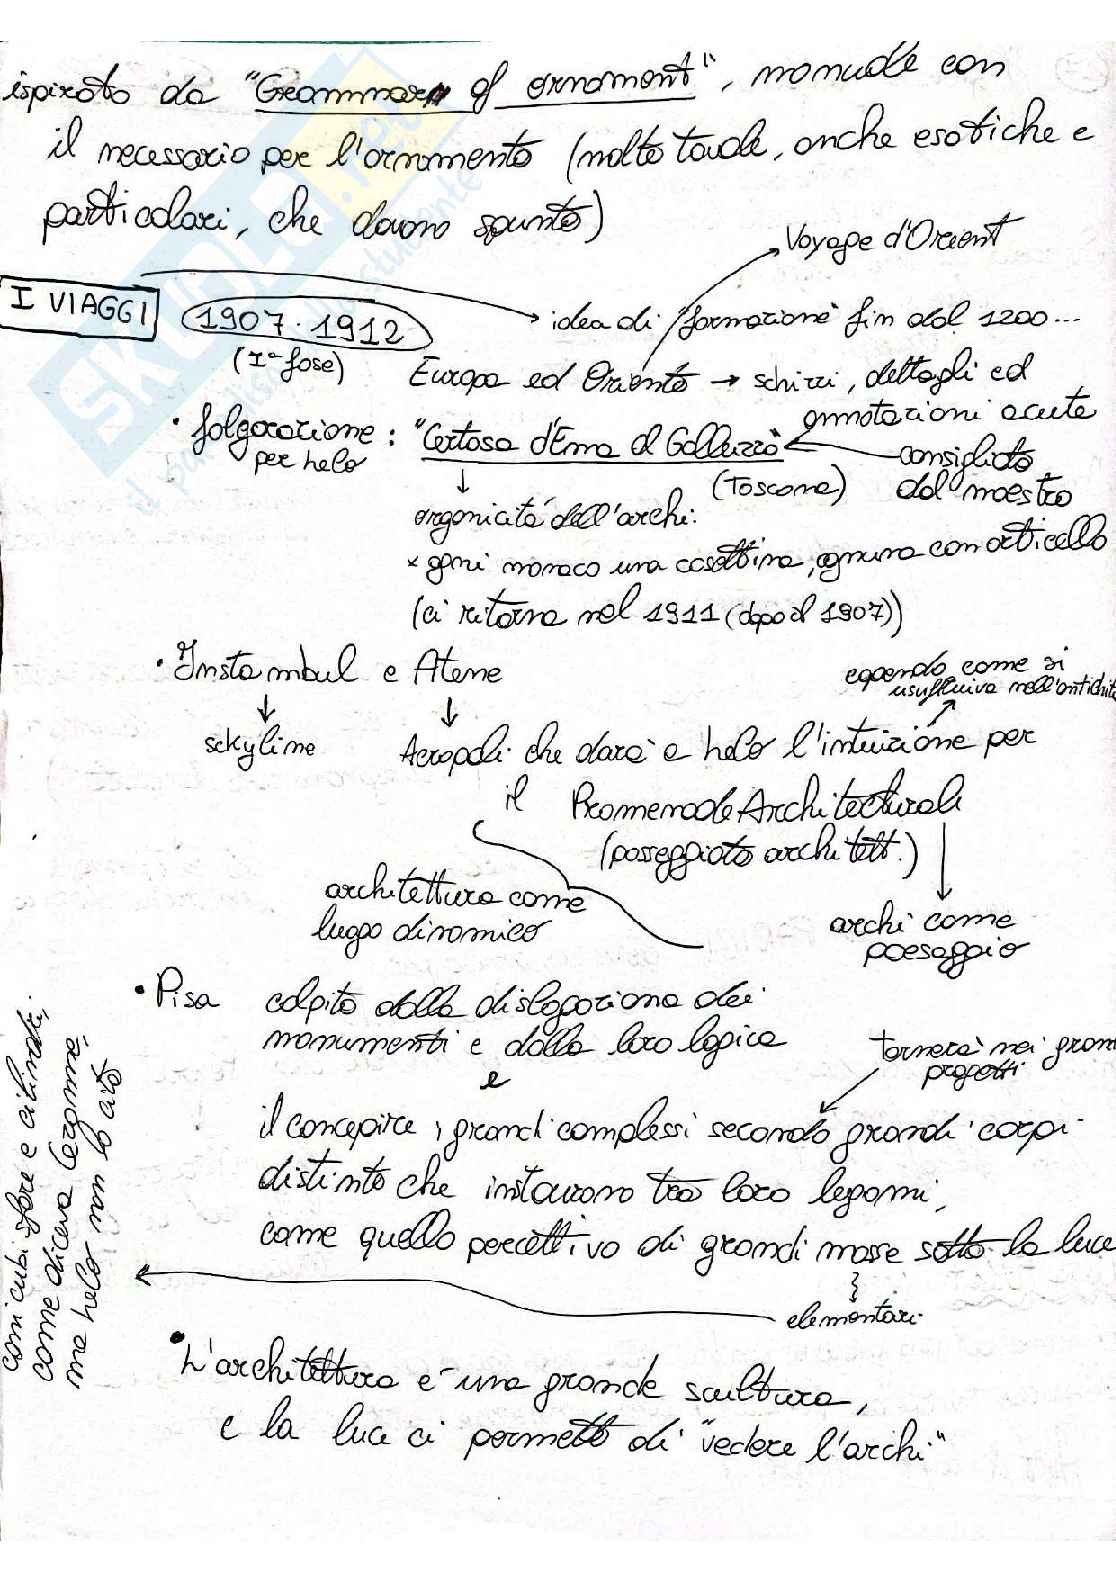 ispirato da "Grammar of ornament", manuale con
il necessario per l'ornamento (molte tavole, anche esotiche e
particolari, che davano spunto)
Voyage d'Orient
I VIAGGI
1907-1912
(1ª fase)
idea di "formazione" fin dal 1200...
Europa ed Oriente → schizzi, dettagli ed
annotazioni acute
• folgorazione :
per helo
"Certosa d'Ema al Galluzzo"
(Toscana)
consigliato
dal maestro
↓
organicità dell'archi.
x ogni monaco una casettina, ognuna con orticello
(ci ritorna nel 1911 (dopo il 1907))
• Instambul e Atene
capendo come si
usufruiva nell'antichità
↓ ↓
sckyline
Acropoli che darà a helo l'intuizione per
il Promenade Architecturale
(passeggiata architett.)
architettura come
luogo dinamico
archi come
paesaggio
• Pisa colpito dalla dislogazione dei
monumenti e dalla loro logica
e
tornerà nei grandi
progetti
il concepire i grandi complessi secondo grandi corpi
distinto che instaurano tra loro legami,
come quello percettivo di grandi masse sotto la luce
elementari
coni cubi sfere e cilindri,
come diceva Cezanne,
ma helo non lo citò
• L'architettura è una grande scultura,
e la luce ci permette di "vedere l'archi"
SKUOLA.net